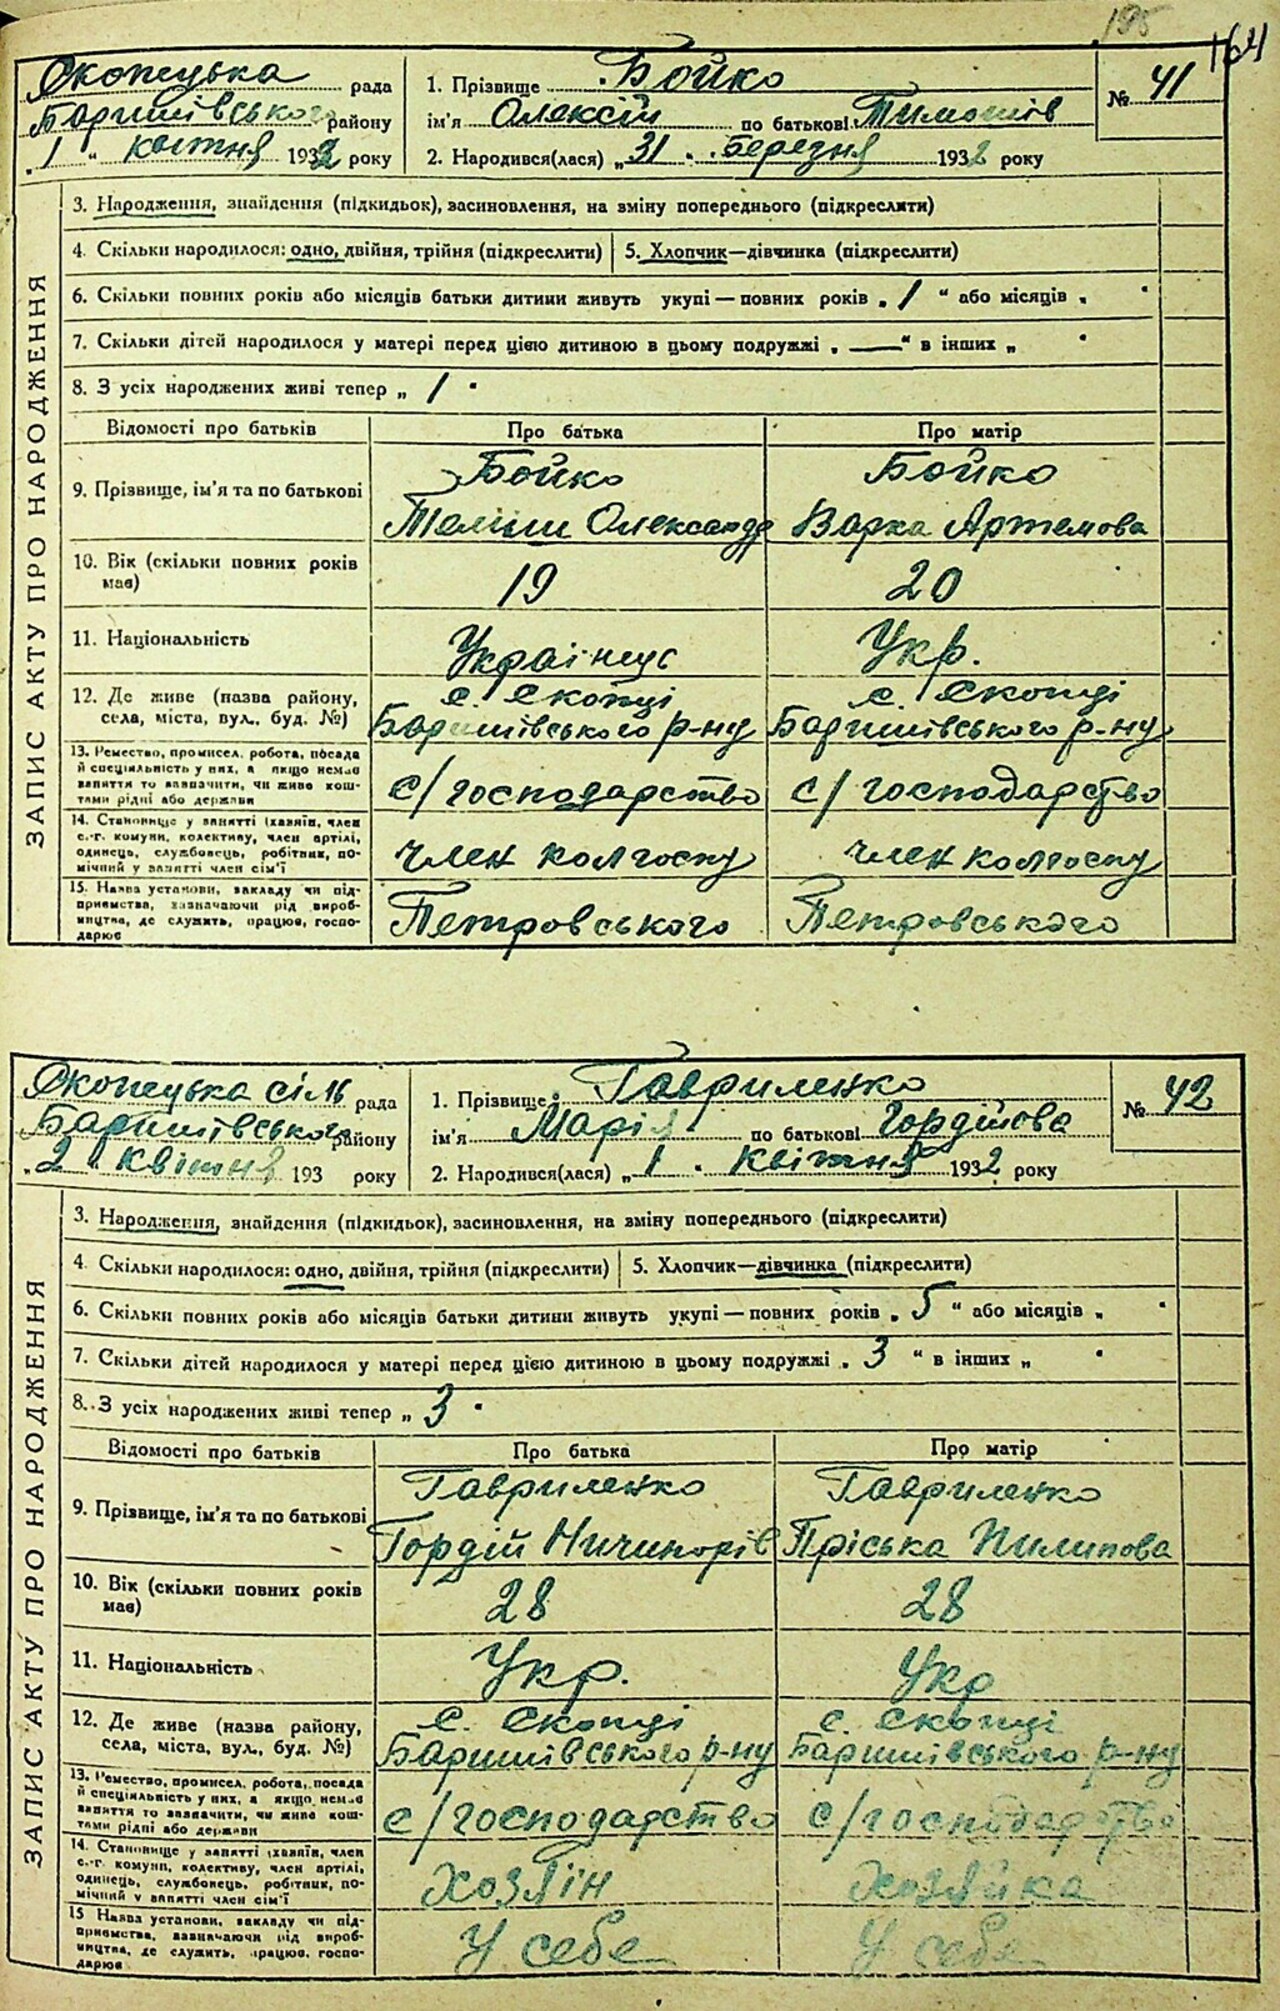 195
164
Скопецька рада
Баришівського району
"1" квітня 1932 року
1. Прізвище Бойко
ім'я Олексій по батькові Тимошів
2. Народився(лася) "31" березня 1932 року
№ 41
ЗАПИС АКТУ ПРО НАРОДЖЕННЯ
3. Народження, знайдення (підкидьок), засиновлення, на зміну попереднього (підкреслити)
4. Скільки народилося: одно, двійня, трійня (підкреслити) 5. Хлопчик—дівчинка (підкреслити)
6. Скільки повних років або місяців батьки дитини живуть укупі — повних років „ 1 “ або місяців „ "
7. Скільки дітей народилося у матері перед цією дитиною в цьому подружжі „ — “ в інших „ "
8. З усіх народжених живі тепер „ 1 "
Відомості про батьків Про батька Про матір
9. Прізвище, ім'я та по батькові
Бойко Бойко
Олександр Варка Артемова
10. Вік (скільки повних років має) 19 20
11. Національність Українец Укр.
12. Де живе (назва району, села, міста, вул., буд. №)
с. Скопці с. Скопці
Баришівського р-ну Баришівського р-ну
13. Ремество, промисел, робота, посада й спеціяльність у них, а якщо немає заняття то зазначити, чи живе коштами рідні або держави
с/господарство с/господарство
14. Становище у занятті (хазяїн, член с.-г. комуни, колективу, член артілі, одинець, службовець, робітник, помічний у занятті член сім'ї
член колгоспу член колгоспу
15. Назва установи, закладу чи підприємства, зазначаючи рід виробництва, де служить, працює, господарює
Петровського Петровського
Скопецька сіль рада
Баришівського району
"2" квітня 193 року
1. Прізвище Гавриленко
ім'я Марія по батькові Гордійова
2. Народився(лася) "1" квітня 1932 року
№ 42
ЗАПИС АКТУ ПРО НАРОДЖЕННЯ
3. Народження, знайдення (підкидьок), засиновлення, на зміну попереднього (підкреслити)
4. Скільки народилося: одно, двійня, трійня (підкреслити) 5. Хлопчик—дівчинка (підкреслити)
6. Скільки повних років або місяців батьки дитини живуть укупі — повних років „ 5 “ або місяців „ "
7. Скільки дітей народилося у матері перед цією дитиною в цьому подружжі „ 3 “ в інших „ "
8. З усіх народжених живі тепер „ 3 "
Відомості про батьків Про батька Про матір
9. Прізвище, ім'я та по батькові
Гавриленко Гавриленко
Гордій Ничипорів Пріська Пилипова
10. Вік (скільки повних років має) 28 28
11. Національність Укр. Укр
12. Де живе (назва району, села, міста, вул., буд. №)
с. Скопці с. Скопці
Баришівського р-ну Баришівського р-ну
13. Ремество, промисел, робота, посада й спеціяльність у них, а якщо немає заняття то зазначити, чи живе коштами рідні або держави
с/господарство с/господарство
14. Становище у занятті (хазяїн, член с.-г. комуни, колективу, член артілі, одинець, службовець, робітник, помічний у занятті член сім'ї
хозяїн хозяйка
15 Назва установи, закладу чи підприємства, зазначаючи рід виробництва, де служить, працює, господарює
У себе У себе